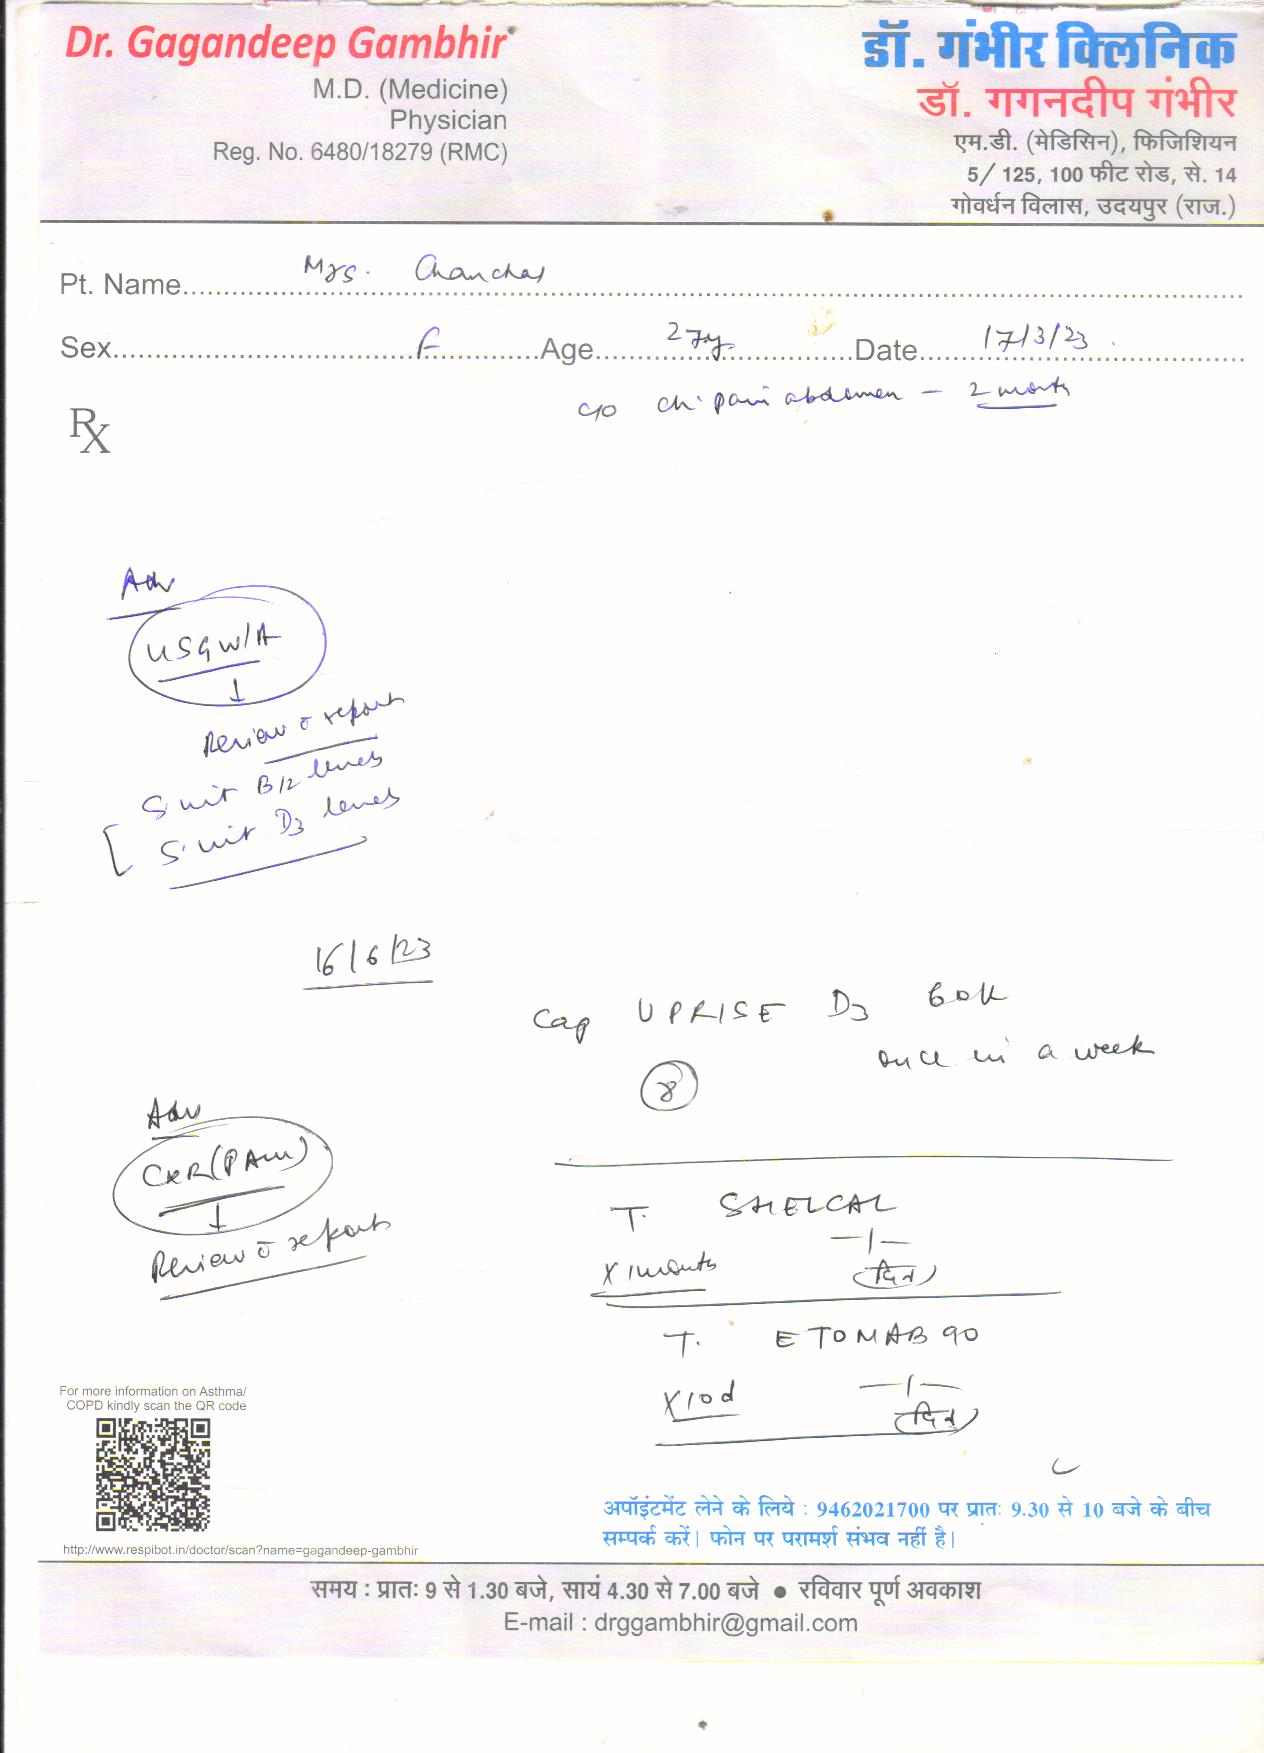 Dr. Gagandeep Gambhir
M.D. (Medicine)
Physician
Reg. No. 6480/18279 (RMC)
डॉ. गंभीर क्लिनिक
डॉ. गगनदीप गंभीर
एम.डी. (मेडिसिन), फिजिशियन
5/ 125, 100 फीट रोड, से. 14
गोवर्धन विलास, उदयपुर (राज.)
Pt. Name Mrs. Chanchal
Sex F Age 27y. Date 17/3/23.
Rx
c/o ch. pain abdomen – 2 months
Adv
USG W/A
↓
Review c̄ reports
S. vit B12 levels
S. vit D3 levels
16/6/23
Cap UPRISE D3 60K
once in a week
8
Adv
CXR (PA view)
↓
Review c̄ reports
T. SHELCAL
—1—
x 1 month (दिन)
T. ETOMAB 90
—1—
x10d (दिन)
For more information on Asthma/
COPD kindly scan the QR code
http://www.respibot.in/doctor/scan?name=gagandeep-gambhir
अपॉइंटमेंट लेने के लिये : 9462021700 पर प्रातः 9.30 से 10 बजे के बीच
सम्पर्क करें। फोन पर परामर्श संभव नहीं है।
समय : प्रातः 9 से 1.30 बजे, सायं 4.30 से 7.00 बजे ● रविवार पूर्ण अवकाश
E-mail : drggambhir@gmail.com